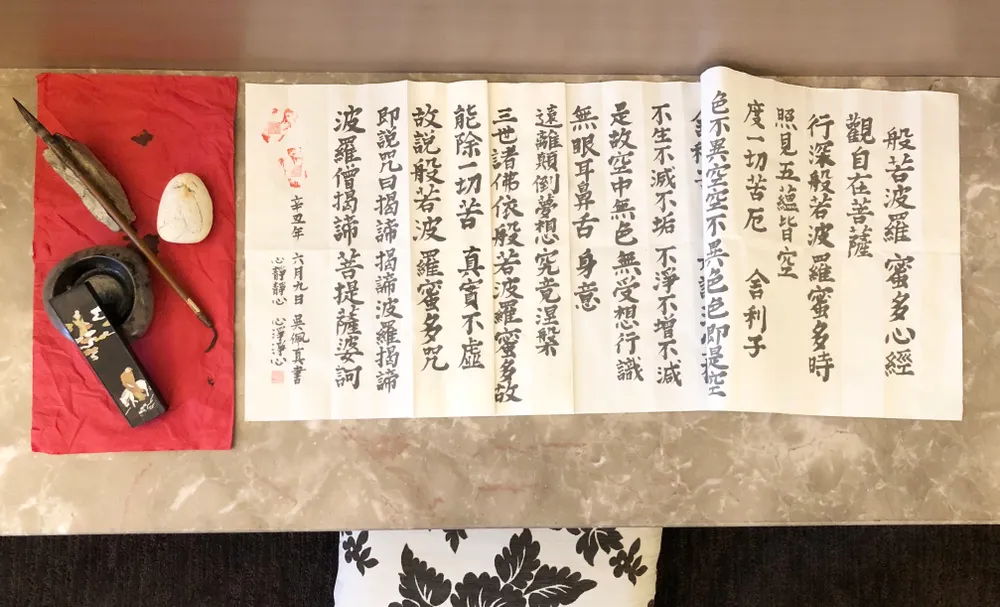 般若波羅蜜多心經
觀自在菩薩
行深般若波羅蜜多時
照見五蘊皆空
度一切苦厄 舍利子
色不異空空不異色色即是空
不生不滅不垢 不淨不增不減
是故空中無色無受想行識
無眼耳鼻舌 身意
遠離顛倒夢想究竟涅槃
三世諸佛依般若波羅蜜多故
能除一切苦 真實不虛
故説般若波 羅蜜多咒
即説咒曰揭諦 揭諦波羅揭諦
波羅僧揭諦 菩提薩婆訶
辛丑年 六月九日 吳佩真書
心靜靜心 心淨淨心